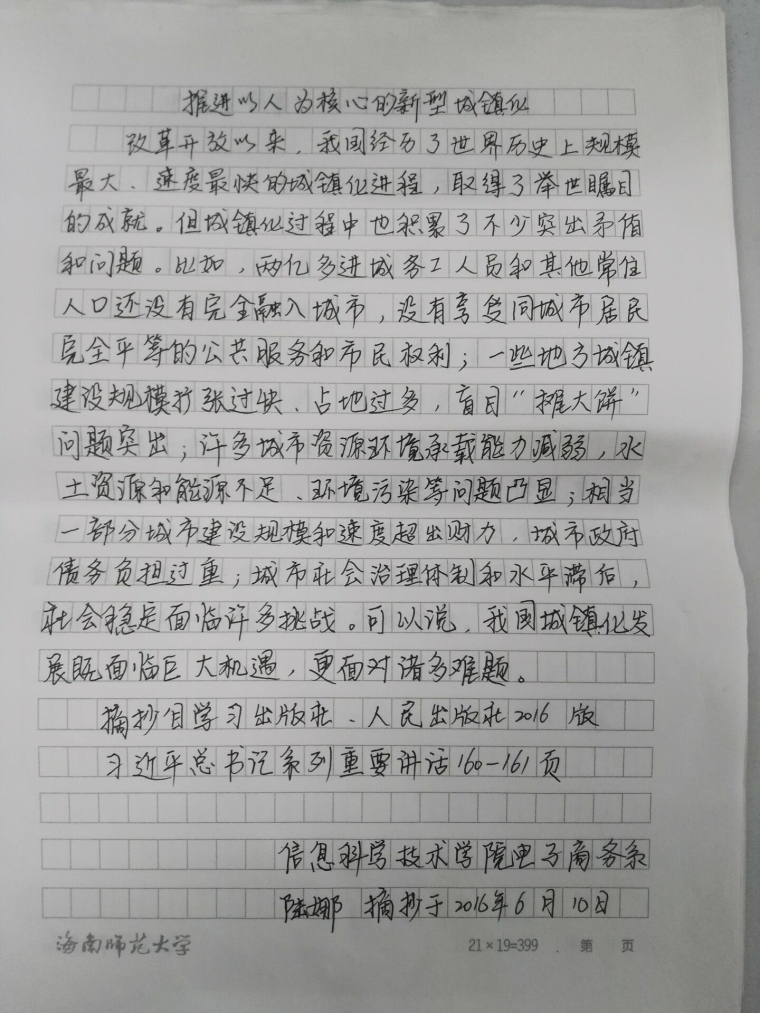 推进以人为核心的新型城镇化
改革开放以来，我国经历了世界历史上规模
最大、速度最快的城镇化进程，取得了举世瞩目
的成就。但城镇化过程中也积累了不少突出矛盾
和问题。比如，两亿多进城务工人员和其他常住
人口还没有完全融入城市，没有享受同城市居民
完全平等的公共服务和市民权利；一些地方城镇
建设规模扩张过快、占地过多，盲目“摊大饼”
问题突出；许多城市资源环境承载能力减弱，水
土资源和能源不足、环境污染等问题凸显；相当
一部分城市建设规模和速度超出财力，城市政府
债务负担过重；城市社会治理体制和水平滞后，
社会稳定面临许多挑战。可以说，我国城镇化发
展既面临巨大机遇，更面对诸多难题。
摘抄自学习出版社、人民出版社2016版
习近平总书记系列重要讲话160-161页
信息科学技术学院电子商务系
陆娜 摘抄于2016年6月10日
海南师范大学 21×19=399 . 第 页